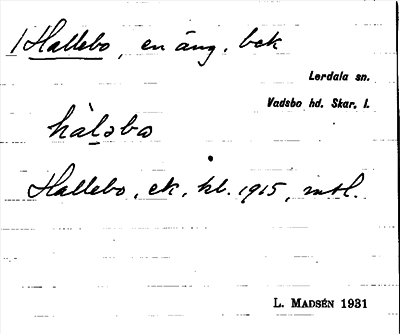 Hallebo, en äng. bek
Lerdala sn.
Vadsbo hd. Skar. l.
hàləbo
Hallebo, ek, kl. 1915, mtl.
L. MADSÉN 1931